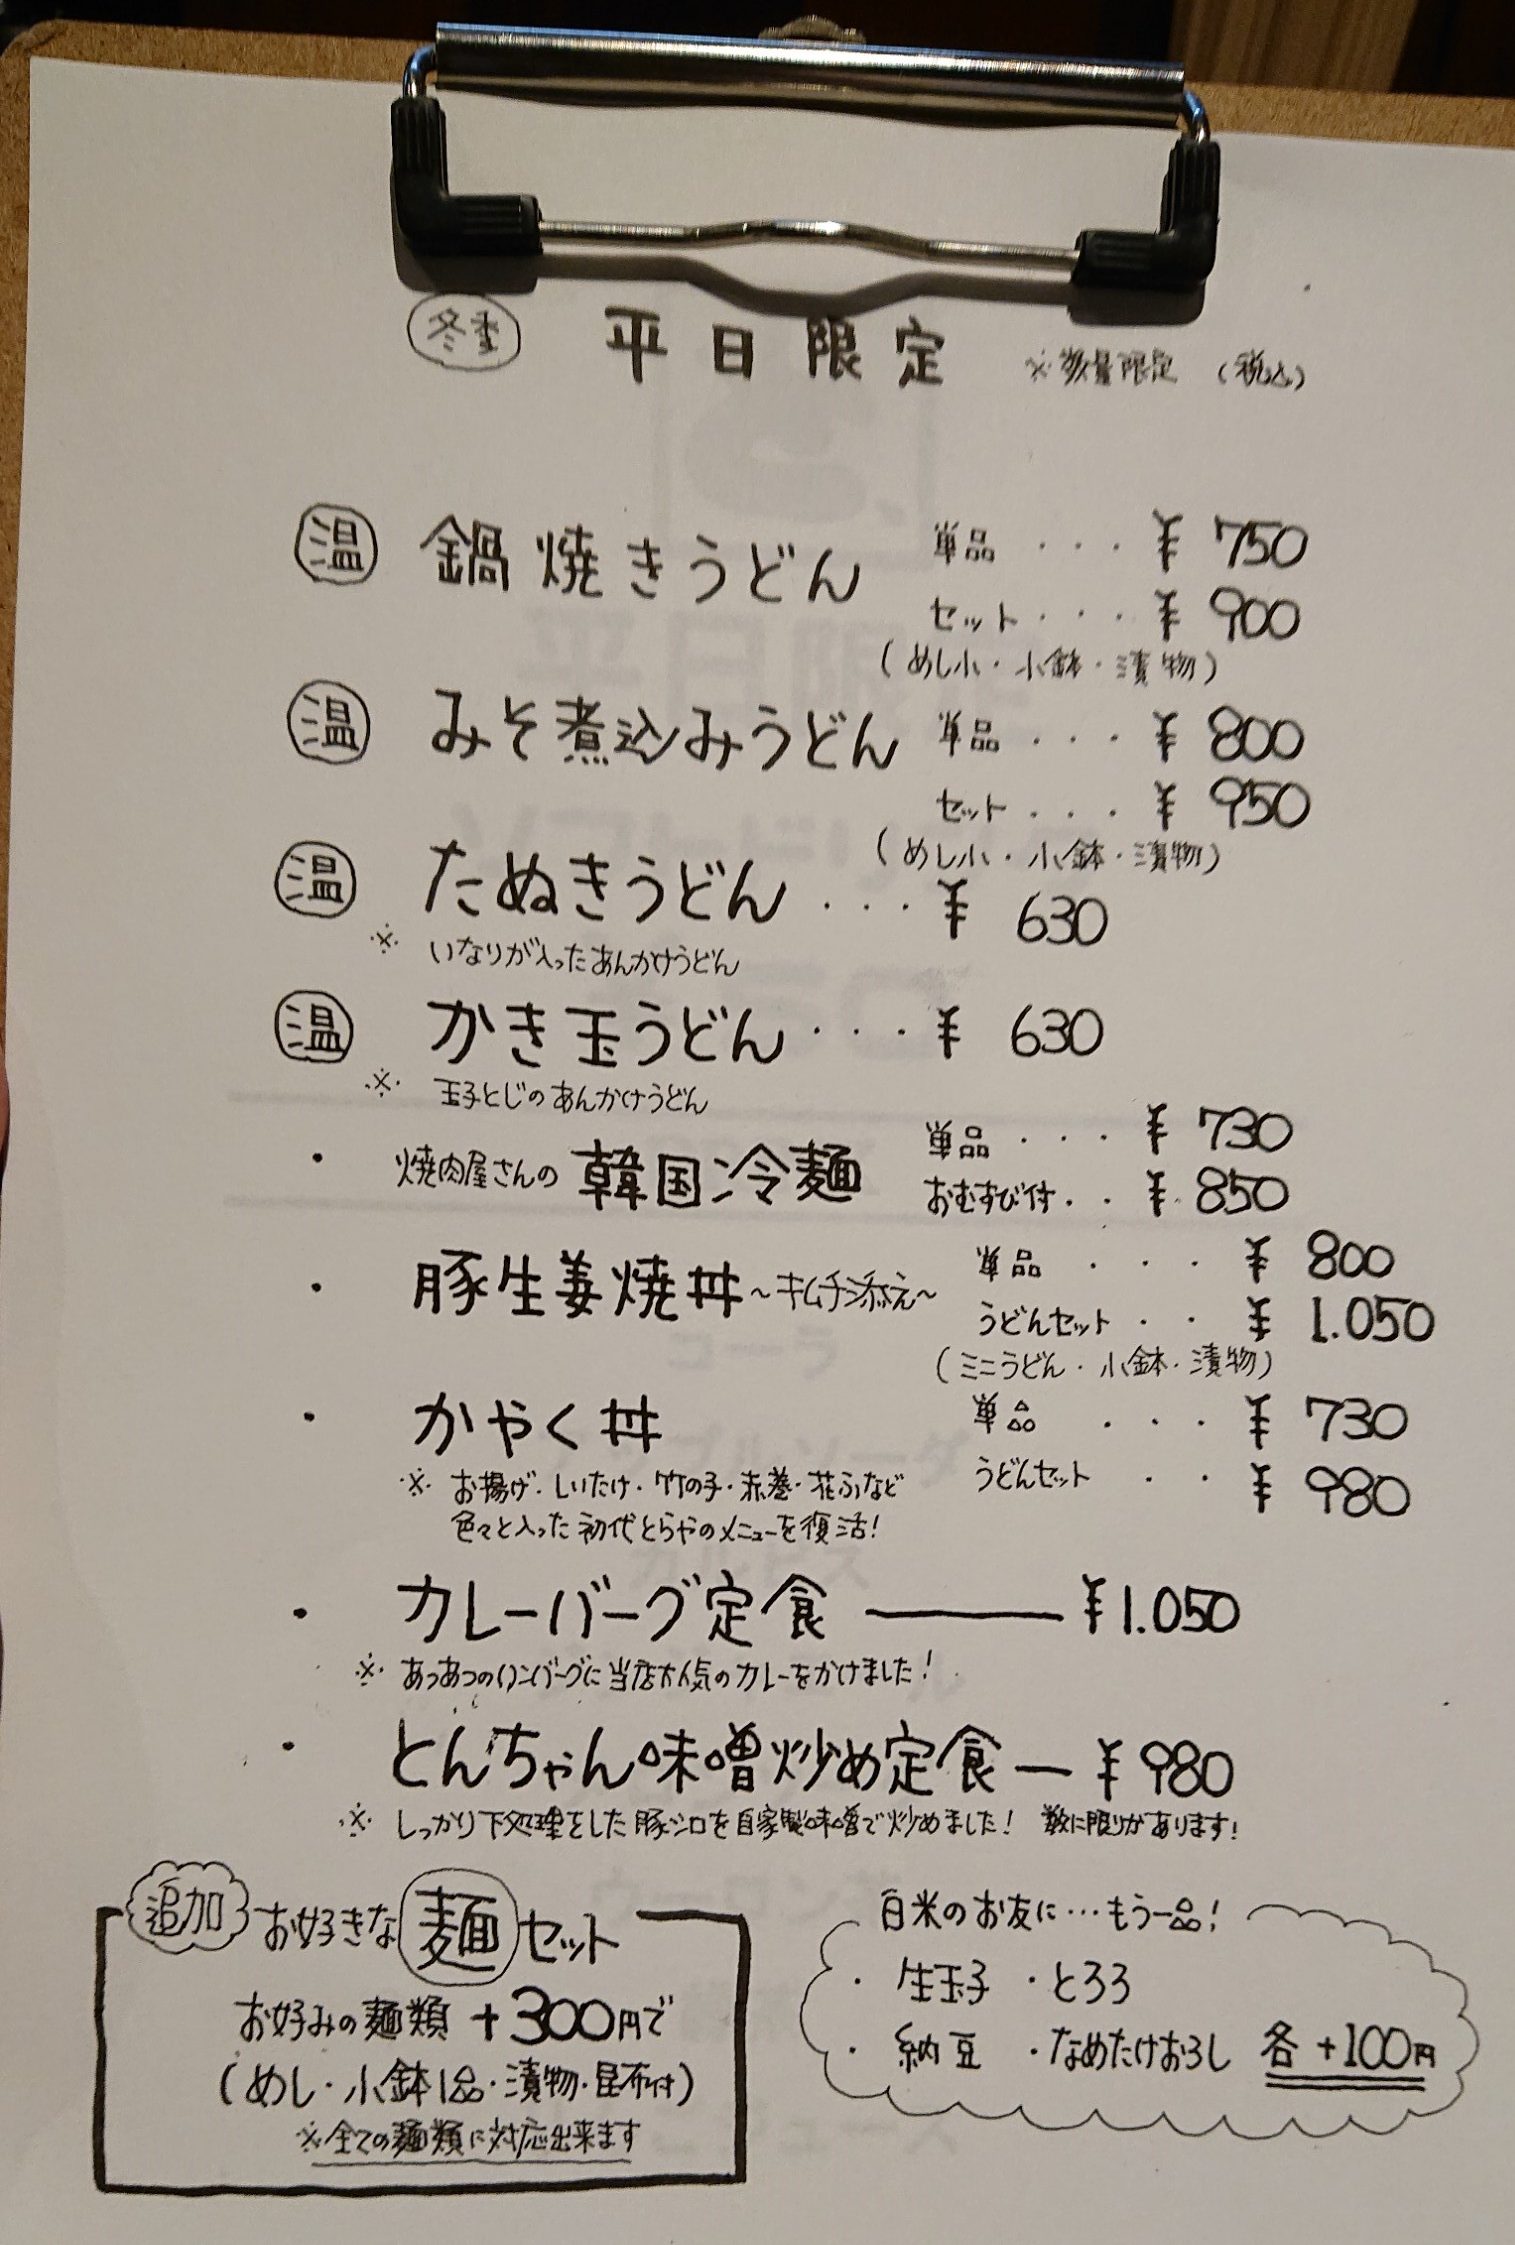 冬季 平日限定 ※数量限定 (税込)
温 鍋焼きうどん 単品・・・¥750
セット・・・¥900
(めし小・小鉢・漬物)
温 みそ煮込みうどん 単品・・・¥800
セット・・・¥950
(めし小・小鉢・漬物)
温 たぬきうどん・・・¥630
※ いなりが入ったあんかけうどん
温 かき玉うどん・・・¥630
※ 玉子とじのあんかけうどん
・ 焼肉屋さんの韓国冷麺 単品・・・¥730
おむすび付・・¥850
・ 豚生姜焼丼~キムチ添え~ 単品・・・¥800
うどんセット・・¥1.050
(ミニうどん・小鉢・漬物)
・ かやく丼 単品・・・¥730
うどんセット・・¥980
※ お揚げ・しいたけ・竹の子・赤巻・花ふなど
色々と入った初代とらやのメニューを復活!
・ カレーバーグ定食 ― ¥1.050
※ あつあつのハンバーグに当店大人気のカレーをかけました!
・ とんちゃん味噌炒め定食 ― ¥980
※ しっかり下処理をした豚シロを自家製味噌で炒めました! 数に限りがあります!
追加 お好きな麺セット
お好みの麺類+300円で
(めし・小鉢1品・漬物・昆布付)
※全ての麺類に対応出来ます
白米のお友に…もう一品!
・生玉子 ・とろろ
・納豆 ・なめたけおろし 各+100円